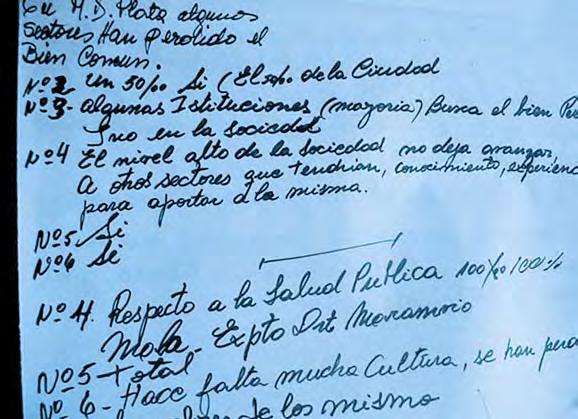 En M.D. Plata algunos
Sectores Han perdido el
Bien Comun.
Nº2 Un 50% Si (El 50% de la Ciudad
Nº3- algunas Istituciones (mayoria) Busca el bien Per
Ino en la Sociedad
Nº4 El nivel alto de la Sociedad no deja avanzar,
A otros sectores que tendrian, conocimiento, experienc
para aportar a la misma.
Nº5 Si
Nº6 Si
Nº4. Respecto a la Salud Publica 100%
Mala-
Nº5- Total
Nº6- Hace falta mucha Cultura, se han perd
de los mismo